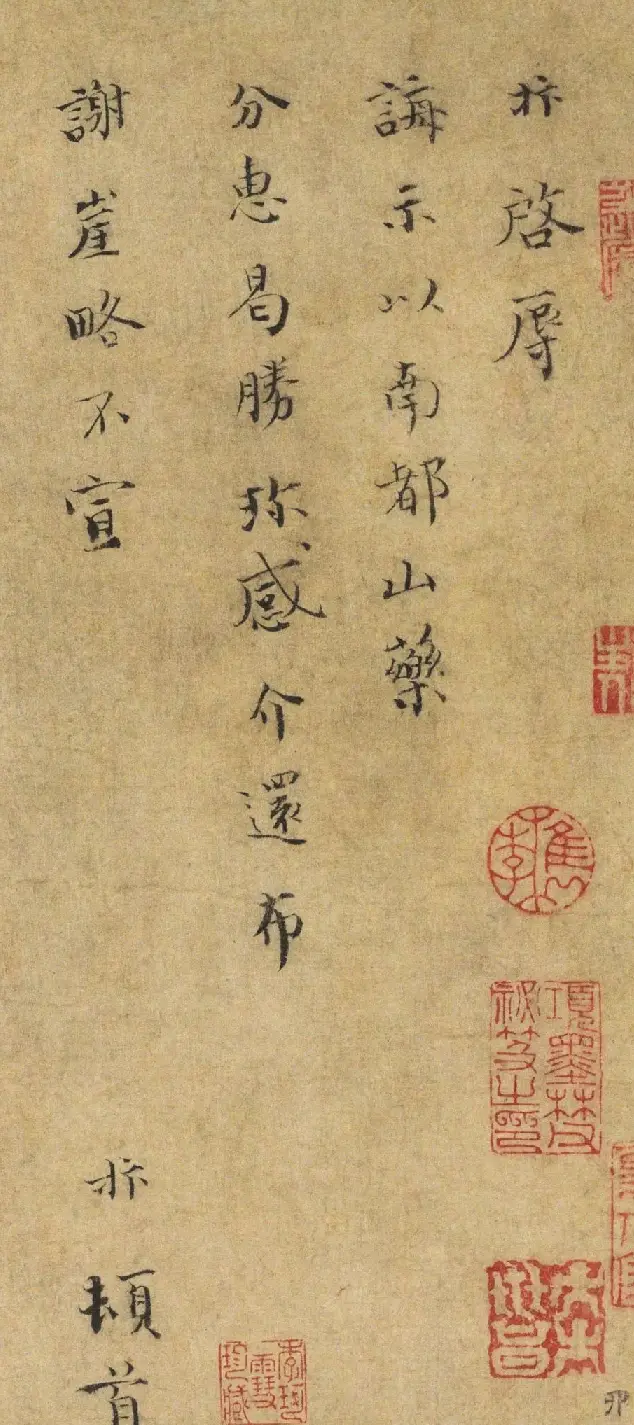 抃啓辱
誨示以南都山藥
分惠曷勝珎感介還布
謝崖略不宣
抃頓首
檇李
項墨林父
秘笈之印